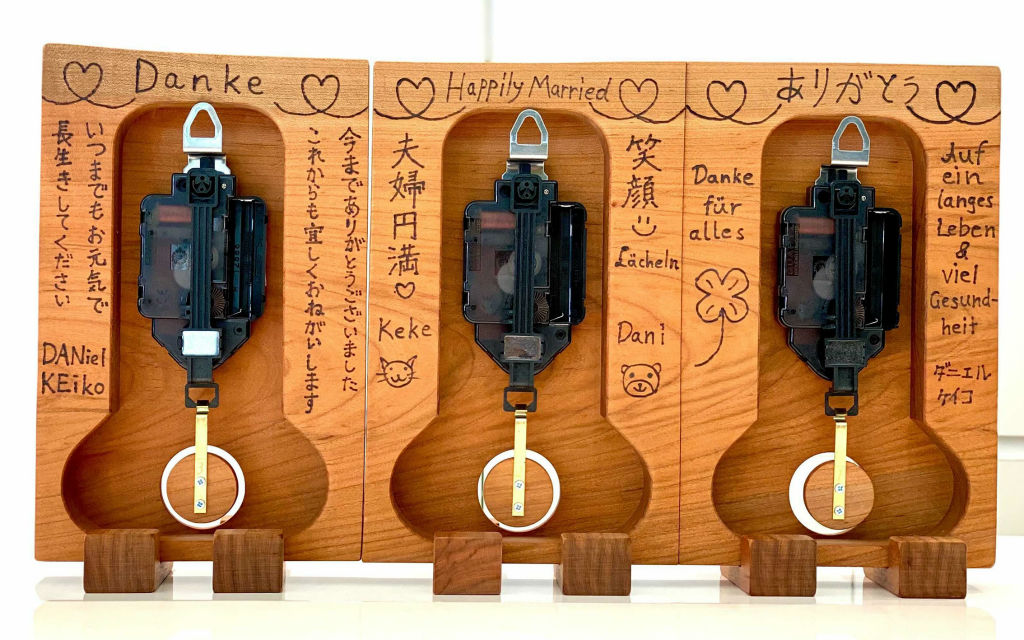 Danke
いつまでもお元気で
長生きしてください
DANiel
KEiko
今までありがとうございました
これからも宜しくおねがいします
Happily Married
夫婦円満♡
Keke
笑顔
Lächeln
Dani
ありがとう
Danke
für
alles
Auf
ein
langes
Leben
&
viel
Gesund-
heit
ダニエル
ケイコ